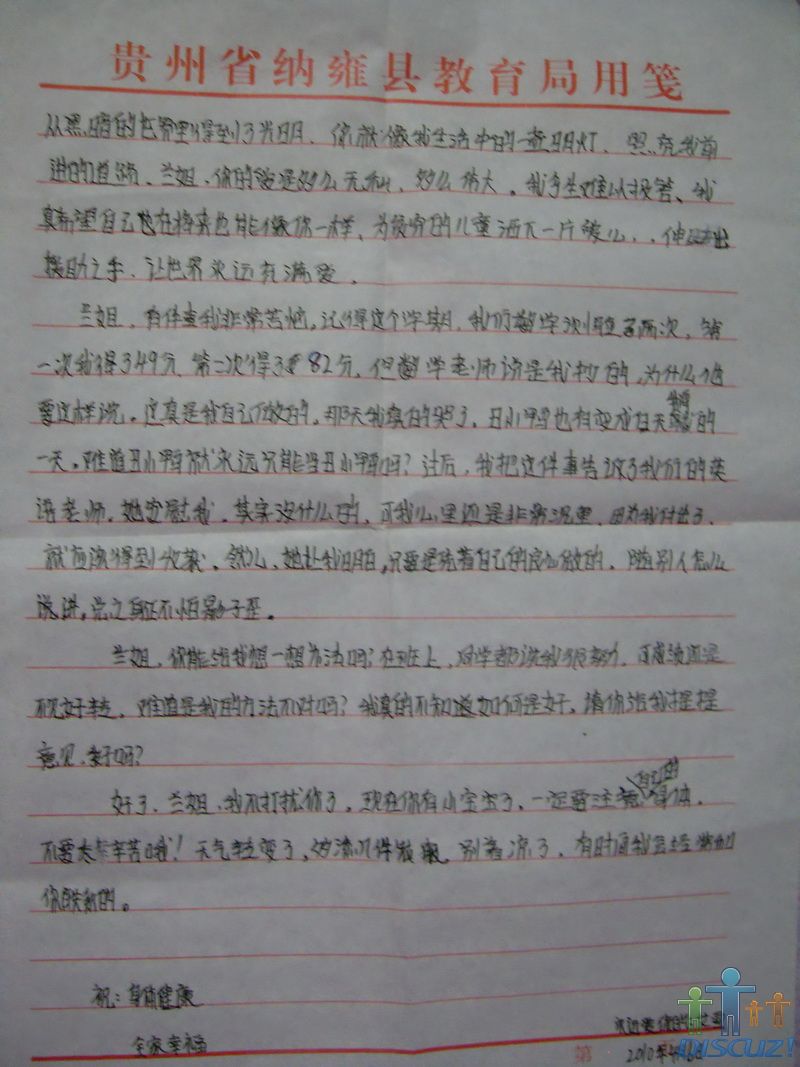 贵州省纳雍县教育局用笺
从黑暗的世界里得到了光明、你就像我生活中的一盏明灯、照亮我前
进的道路、兰姐、你的爱是多么无私、多么伟大。我今生难以报答、我
真希望自己也在将来也能像你一样、为贫穷的儿童洒下一片爱心、伸出
援助之手、让世界永远充满爱。
兰姐、有件事我非常苦恼。记得这个学期、我们数学测验了两次、第
一次我得了49分、第二次得了82分、但数学老师说是我抄的、为什么他
要这样说。这真是我自己做的、那天我真的哭了、丑小鸭也有变成白天鹅的
一天。难道丑小鸭就永远只能当丑小鸭吗？过后、我把这件事告诉了我们的英
语老师。她安慰我。其实没什么的、可我心里还是非常沉重、因为我付出了、
就应该得到收获。然后、她让我明白、只要是凭着自己的良心做的、随别人怎么
说讲。总之身正不怕影子歪。
兰姐、你能给我想一想办法吗？在班上、同学都说我很努力、可成绩还是
不见好转、难道是我的方法不对吗？我真的不知道如何是好。请你给我提提
意见、好吗？
好了、兰姐、我不打扰你了、现在你有小宝宝了、一定要注意自己的身体、
不要太辛苦哦！天气转变了、多添几件衣服、别着凉了、有时间我会给你
祝：身体健康
全家幸福
2010年
第
DISCUZ!